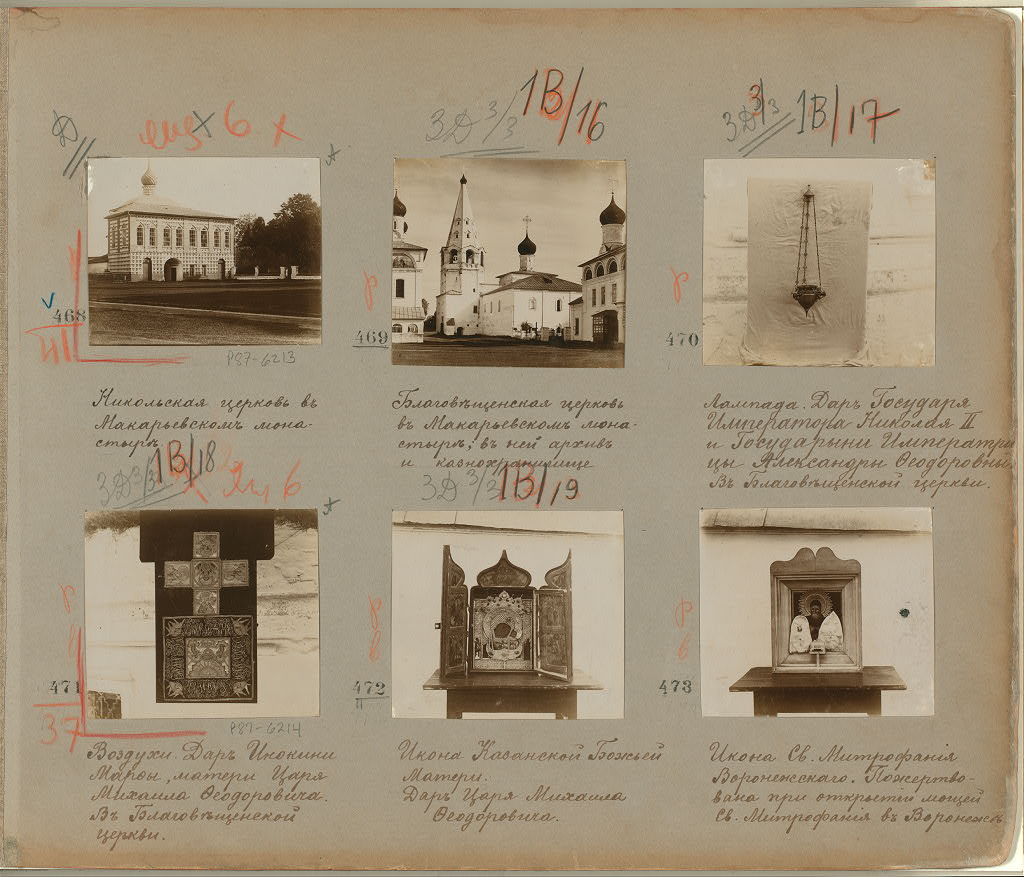 Д
еиз х 6 х
А
3Д 3/3
1В/16
3Д 3/3
1В/17
468
р
469
р
470
Р87-6213
Никольская церковь въ
Макарьевскомъ мона-
стырѣ.
Благовѣщенская церковь
въ Макарьевскомъ мона-
стырѣ; въ ней архивъ
и казнохранилище
Лампада. Даръ Государя
Императора Николая II
и Государыни Императри
цы Александры Ѳеодоровны.
Въ Благовѣщенской церкви.
3Д 3/3
1В/18
6
А
3Д 3/2
1В/19
471
37
472
473
Р87-6214
Воздухи. Даръ Инокини
Марѳы, матери Царя
Михаила Ѳеодоровича.
Въ Благовѣщенской
церкви.
Икона Казанской Божьей
Матери.
Даръ Царя Михаила
Ѳеодоровича.
Икона Св. Митрофанія
Воронежскаго. Пожертво-
вана при открытіи мощей
Св. Митрофанія въ Воронежѣ.